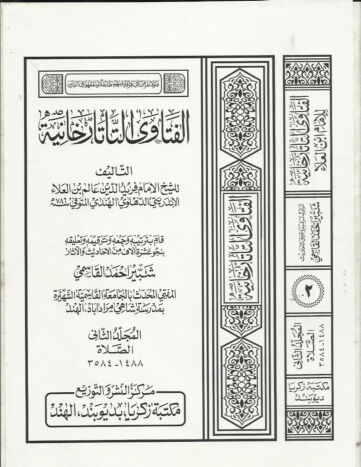 الفتاوى التاتارخانية
التأليف
للشيخ الإمام فريد الدين عالم بن العلاء
الإندربتي الدهلوي الهندي المتوفى ٧٨٦ھ
قام بترتيبه وجمعه وترقيمه وتعليقه
بنحو عشرة آلاف من الأحاديث والآثار
شبير أحمد القاسمي
المفتي المحدث بالجامعة القاسمية الشهيرة
بمدرسة شاهي مراداباد، الهند
المجلد الثاني
الصلاة
١٤٨٨-٣٥٨٤
مركز النشر والتوزيع
مكتبة زكريا بديوبند، الهند
الفتاوى التاتارخانية
الفتاوى التاتارخانية
للإمام ابن العلاء
شبير أحمد القاسمي
٢
المجلد الثاني
الصلاة
١٤٨٨-٣٥٨٤
مكتبة زكريا
ديوبند